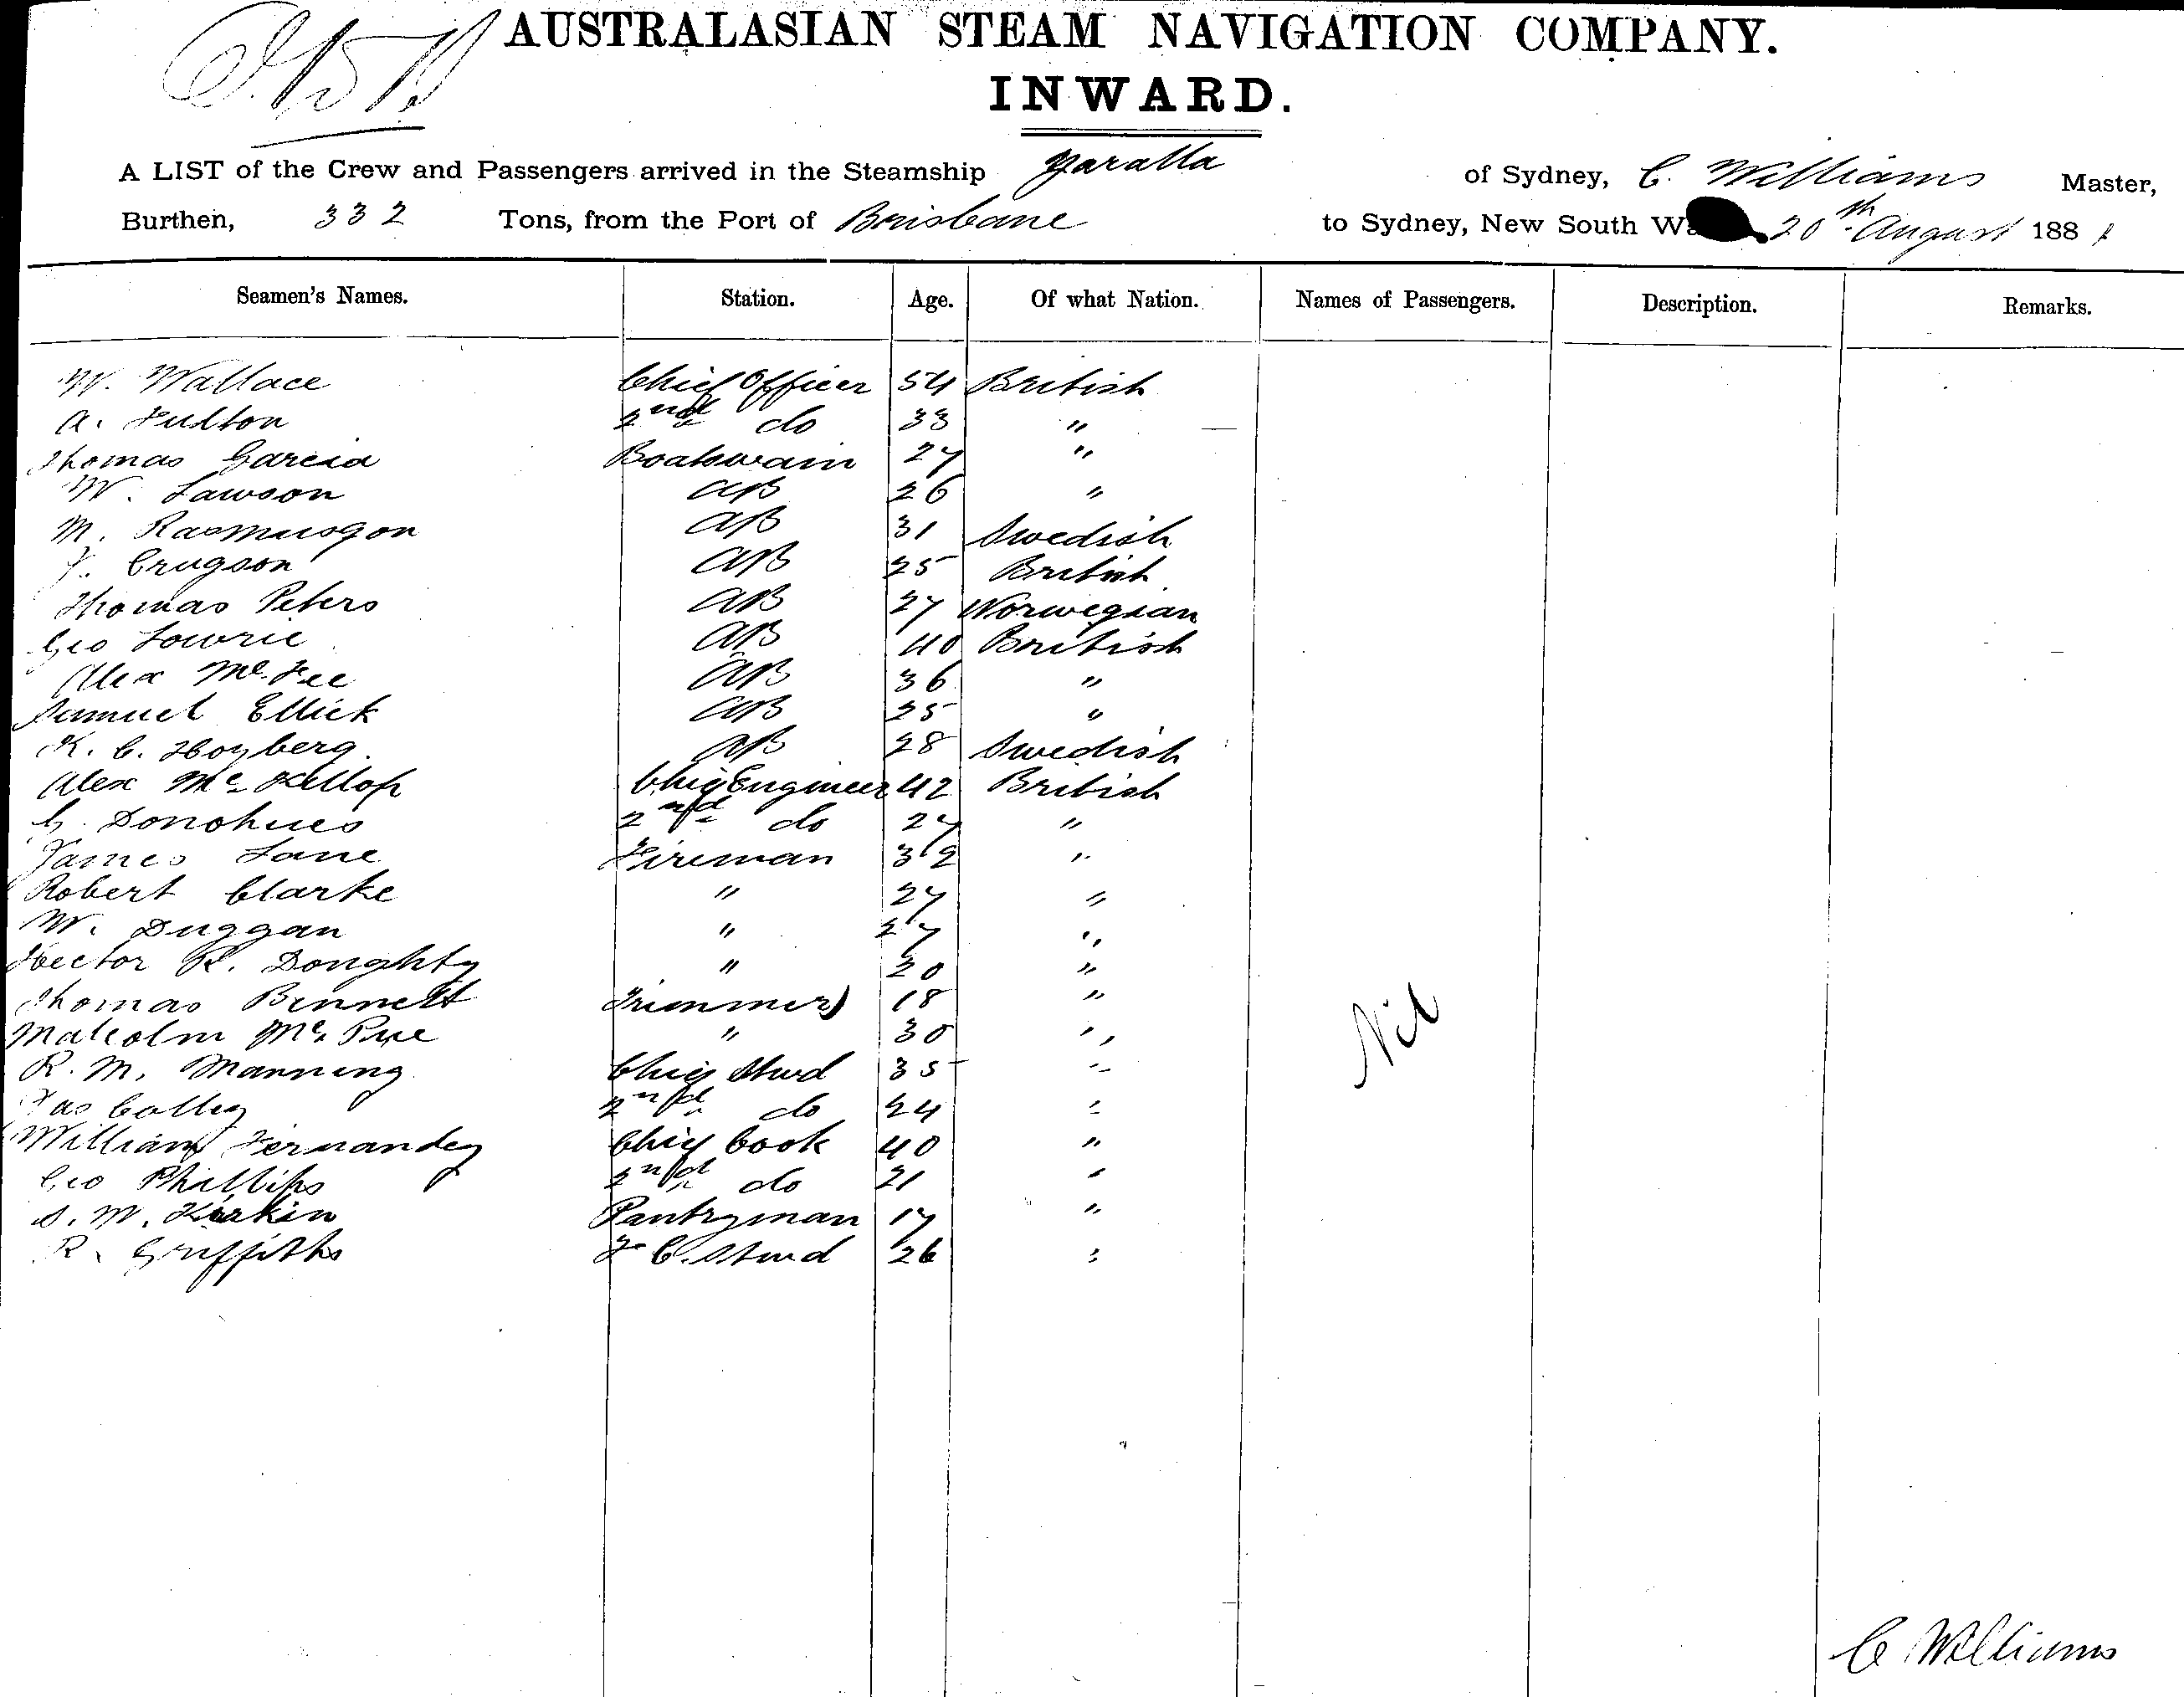 AUSTRALASIAN STEAM NAVIGATION COMPANY.
INWARD.
A LIST of the Crew and Passengers arrived in the Steamship Yaralla of Sydney, C. Williams Master,
Burthen, 332 Tons, from the Port of Brisbane to Sydney, New South 20th August 1881
Seamen's Names. Station. Age. Of what Nation. Names of Passengers. Description. Remarks.
W. Wallace Chief Officer 54 British
A. Fulton 2nd do 33 "
Thomas Garcia Boatswain 27 "
W. Lawson AB 26 "
M. Rasmusson AB 31 Swedish
Crugson AB 25 British
Thomas Peters AB 27 Norwegian
Geo Lowrie AB 40 British
Alex McFee AB 36 "
Samuel Ellick AB 25 "
K. C. Hoyberg AB 28 Swedish
Alex McKillop Chief Engineer 42 British
Donohues 2nd do 27 "
James Lane Fireman 39 "
Robert Clarke " 27 "
W. Duggan " 27 "
Hector R. Doughty " 20 "
Thomas Bennett Trimmer 18 "
Malcolm Mc " 30 "
R. M. Manning Chief Stwd 35 "
Jas Colley 2nd do 24 "
William Fernandez Chief Cook 40 "
Geo Phillips 2nd do 21 "
S. M. Pantryman 17 "
R. Griffiths F C. Stwd 26 "
Nil
C Williams